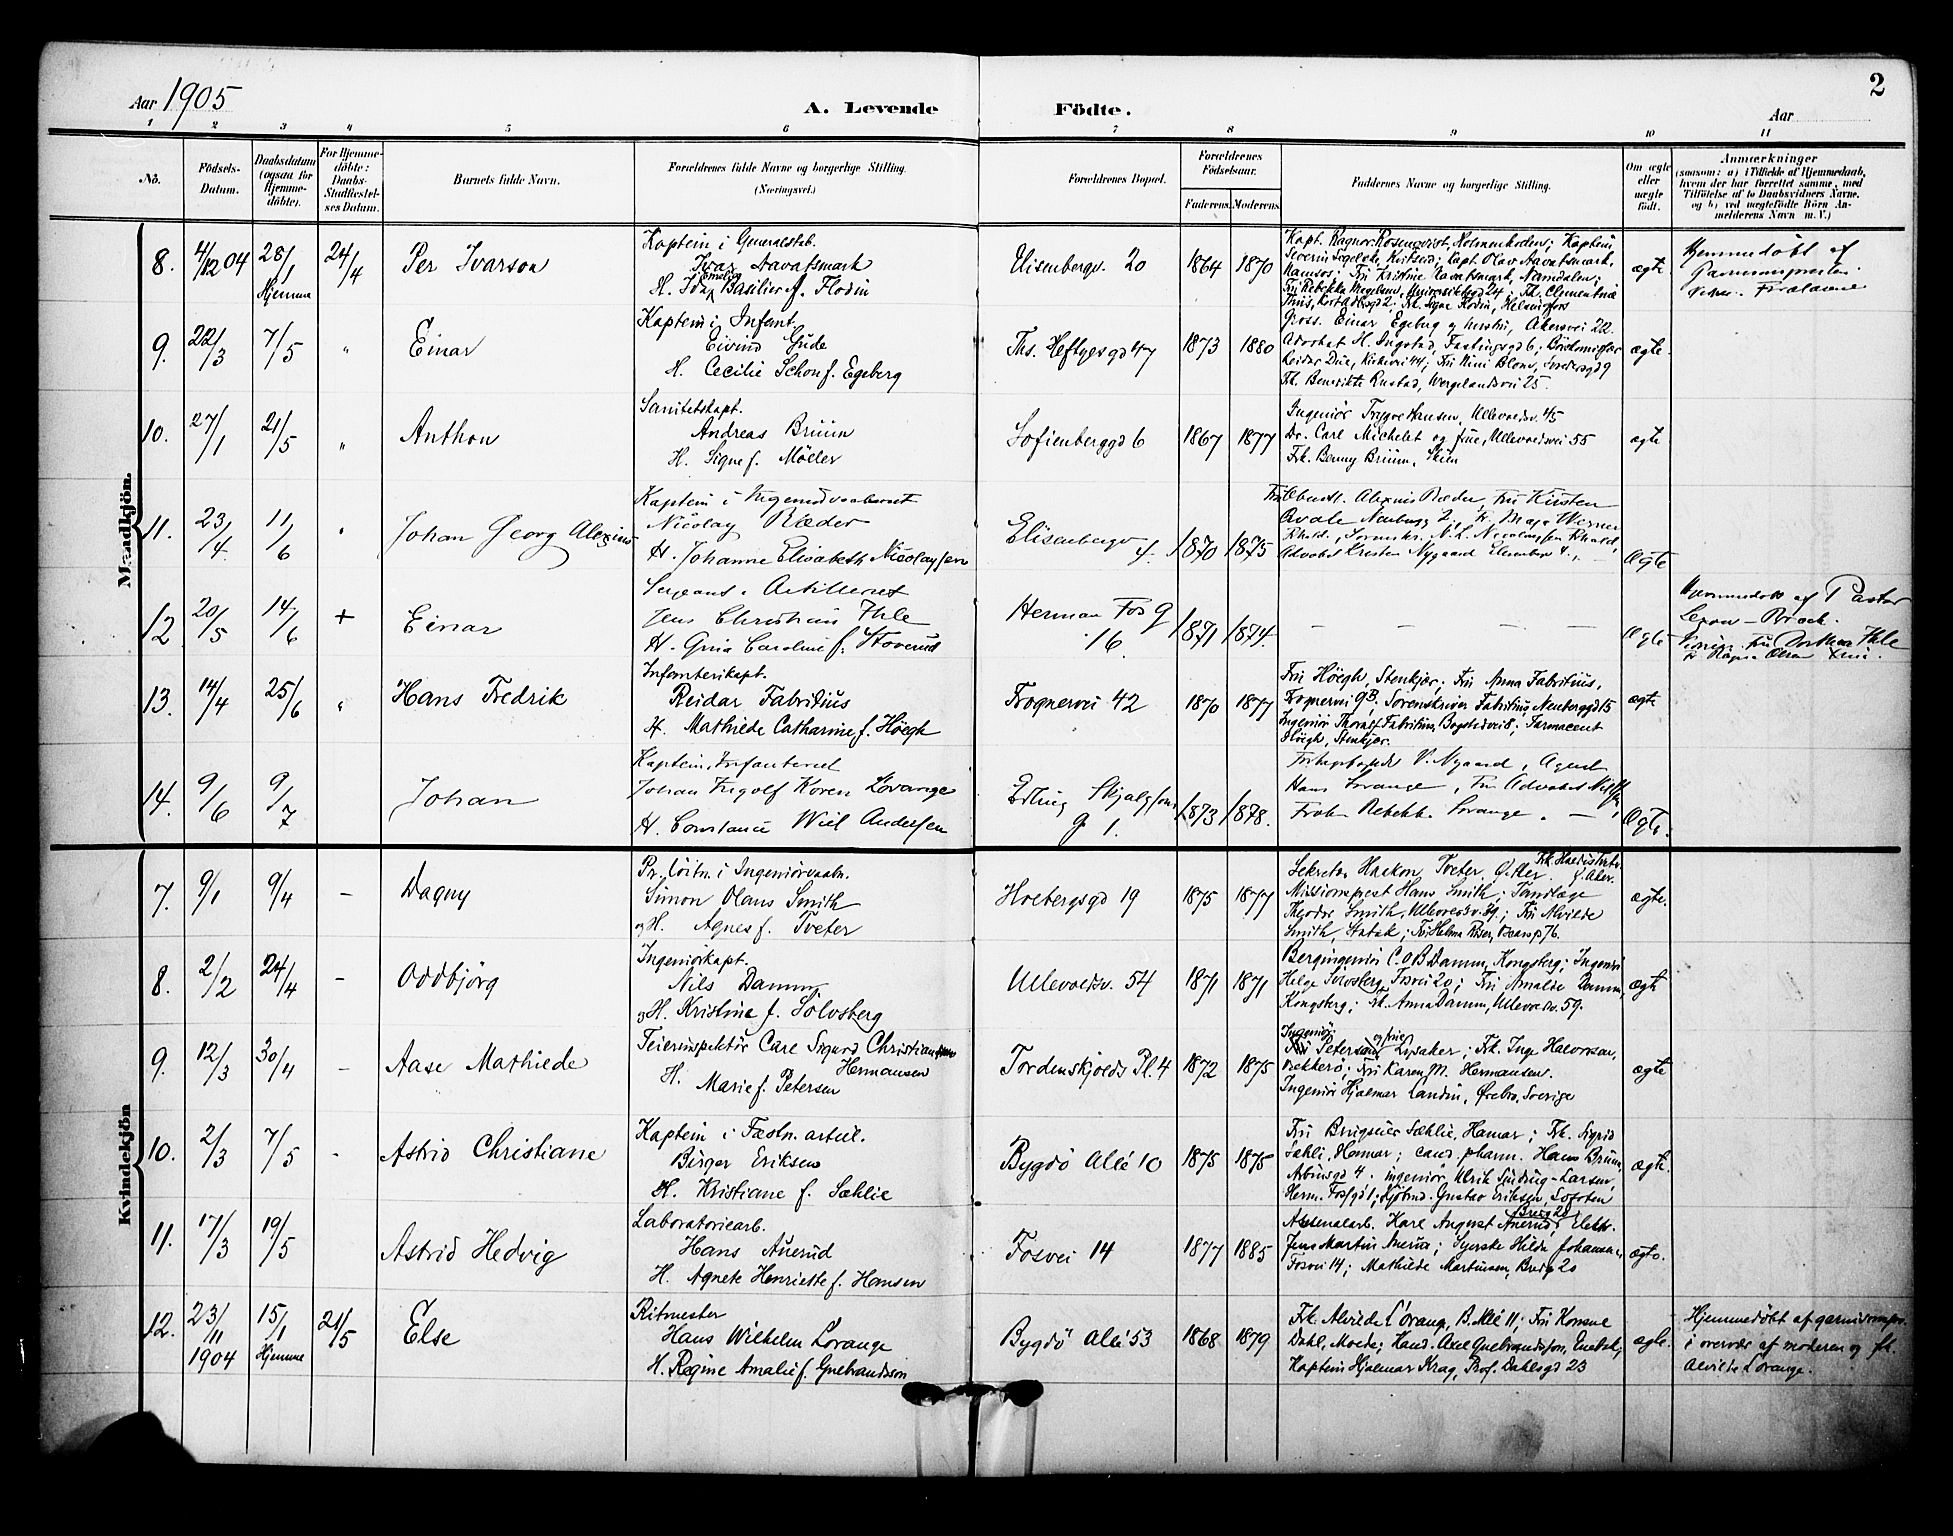 2
Aar 1905
A. Levende Födte.
Aar
1 2 3 4 5 6 7 8 9 10 11
Nô.
Födsels-Datum.
Daabsdatum (ogsaa for Hjemmedöbte).
For Hjemmedöbte: Daabs-Stadfæstelses Datum.
Barnets fulde Navn.
Forældrenes fulde Navne og borgerlige Stilling.
(Næringsvei.)
Forældrenes Bopæl.
Forældrenes Födselsaar.
Faderens. Moderens.
Faddernes Navne og borgerlige Stilling.
Om ægte eller uægte födt.
Anmærkninger
(saasom: a) i Tilfælde af Hjemmedaab, hvem der har forrettet samme, med Tilföielse af to Daabsvidners Navne. og b) ved uægtefödte Börn Anmelderens Navn m. V.)
Mandkjön.
8. 4/12 04 28/1 Hjemme 24/4 Per Ivarson
Kaptein i Generalstab.
Ivar Aavatsmark
H. Ida Emelia Basilier f. Flodin
Elisenbergv. 20 1864 1870
Kapt. Ragnvr. Rosenqvist, Holmenkolen; Kaptein
Namsos; Fru Kristine Aavatsmark, Namdalen;
ægte
Hjemmedöbt af
9. 22/3 7/5 " Einar
Kaptein i Infant.
Eivind Gude
H. Cecilie Schou f. Egeberg
Ths. Heftyesgd 47 1873 1880
Gross. Einar Egeberg og hustru, Akersvei 22.
Advokat H. Ingstad, Fastingsgd 6;
Frk. Benedikte Rustad, Wergelandsvei 25.
ægte.
10. 27/1 21/5 " Anthon
Sanitetskapt.
Andreas Brüun
H. Signe f. Möller
Sofienberggd 6 1867 1877
Ingeniör Trygve Hansen, Ullevoldsv. 45
Dr. Carl Michelet og frue, Ullevoldsvei 55
Frk. Benny Brüun, Skien
ægte
11. 23/4 11/6 " Johan Georg Alexius
Kaptein i Ingeniörvaabenet
Nicolay Ræder
H. Johanne Elisabeth Nicolayssen
Elisenbergv 4. 1870 1875
Fru Oberstl. Alexius Ræder, Fru Kirsten
Advokat Kristen Nygaard Elisenberg 4.
Ægte
12 20/5 14/6 + Einar
Sergeant i Artilleriet
Jens Christian Ihle
H. Gina Caroline f. Stoverud
Herman Fos g 16. 1871 1874.
– – – –
Ægte
Hjemmedöbt af Pastor
13. 14/4 25/6 " Hans Fredrik
Infanterikapt.
Reidar Fabritius
H. Mathilde Catharine f. Höegh
Frognervei 42 1870 1877
Fru Höegh, Stenkjær; Fru Anna Fabritius,
Frognervei 9B; Sorenskriver Fabritius Neuberggd 15
Ingeniör Thoralf Fabritius, Bogstadvei 8; Farmaceut
Höegh, Stenkjær.
ægte
14. 9/6 9/7 Johan
Kaptein, Infanteriet
Johan Ingolf Koren Lorange
H. Constance Wiel Andersen
Erling Skjalgssons g 1. 1873 1878.
V. Nygaard, Agent
Hans Lorange, Fru Advokat
Frøken Rebekka Lorange. –
Ægte.
Kvindekjön
7. 9/1 9/4 – Dagny
Pr. löitn. i Ingeniörvaabn.
Simon Olaus Smith
og H. Agnes f. Tveter
Holbergsgd 19 1875 1877
Sekretær Haakon Tveter, Ö. Aker. Frk. Haldis Tveter Ö. Aker.
Missionsprest Hans Smith; Tandlæge
Theodor Smith, Ullevoldsv. 39; Fru Alvilde
ægte.
8. 2/2 24/4 – Oddbjörg
Ingeniörkapt.
Nils Damm
og H. Kristina f. Sölvsberg
Ullevoldsv. 54 1871 1871
Bergingeniör C. O. B. Damm, Kongsberg; Ingeniör
Helge Sölvsberg, Fosvei 20; Fru Amalie Damm,
Kongsberg; Frk. Anna Damm, Ullevoldsv. 59.
ægte
9. 12/3 30/4 – Aase Mathilde
Feierinspektör Carl Sigurd Christian
Hermansen
H. Marie f. Petersen
Tordenskjolds Pl. 4 1872 1875
Ingeniör Petersen og frue, Lysaker; Frk. Inga Halvorsen,
Bekkerö; Fru Karen M. Hermansen.
Ingeniör Hjalmar Landin, Örebro, Sverige
ægte
10. 2/3 7/5 – Astrid Christiane
Kaptein i Fæstn. artill.
Birger Eriksen
H. Kristiane f. Sæhlie
Bygdö Allé 10 1875 1875
Fru Brigseier Sæhlie, Hamar; Frk. Sigrid
Sæhli, Hamar; cand. pharm. Hans Brüun,
Herm. Fossgd 1; Gustav Eriksen Lofoten
ægte.
11. 17/3 19/5 Astrid Hedvig
Laboratoriearb.
Hans Auerud
H. Agnete Henriette f. Hansen
Fosvei 14 1877 1885
Arsenalarb. Karl August Auerud, Bredg 20 Elektr.
Jens Martin Auerud; Syerske Hilda Johansen,
Fosvei 14; Mathilde Martinsen, Bredg 20
ægte.
12. 23/11 1904 15/1 Hjemme 21/5 Else
Ritmester
Hans Wilhelm Lorange
H. Regine Amalie f. Gulbrandsson
Bygdö Allé 53 1868 1879
Frk. Alvilde Lorange, B. Allé 11; Fru Konsul
Dahl, Molde; Hand. Axel Gulbrandsson,
Kaptein Hjalmar Krag, Prof. Dahlsgd 23
ægte.
Hjemmedöbt af garnisonspr.
i overvær af moderen og frk.
Alvilde Lorange.